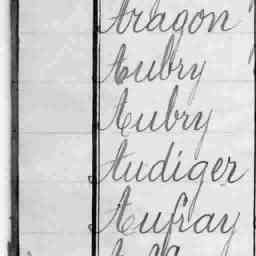 Aragon
Aubry
Aubry
Audiger
Aufray